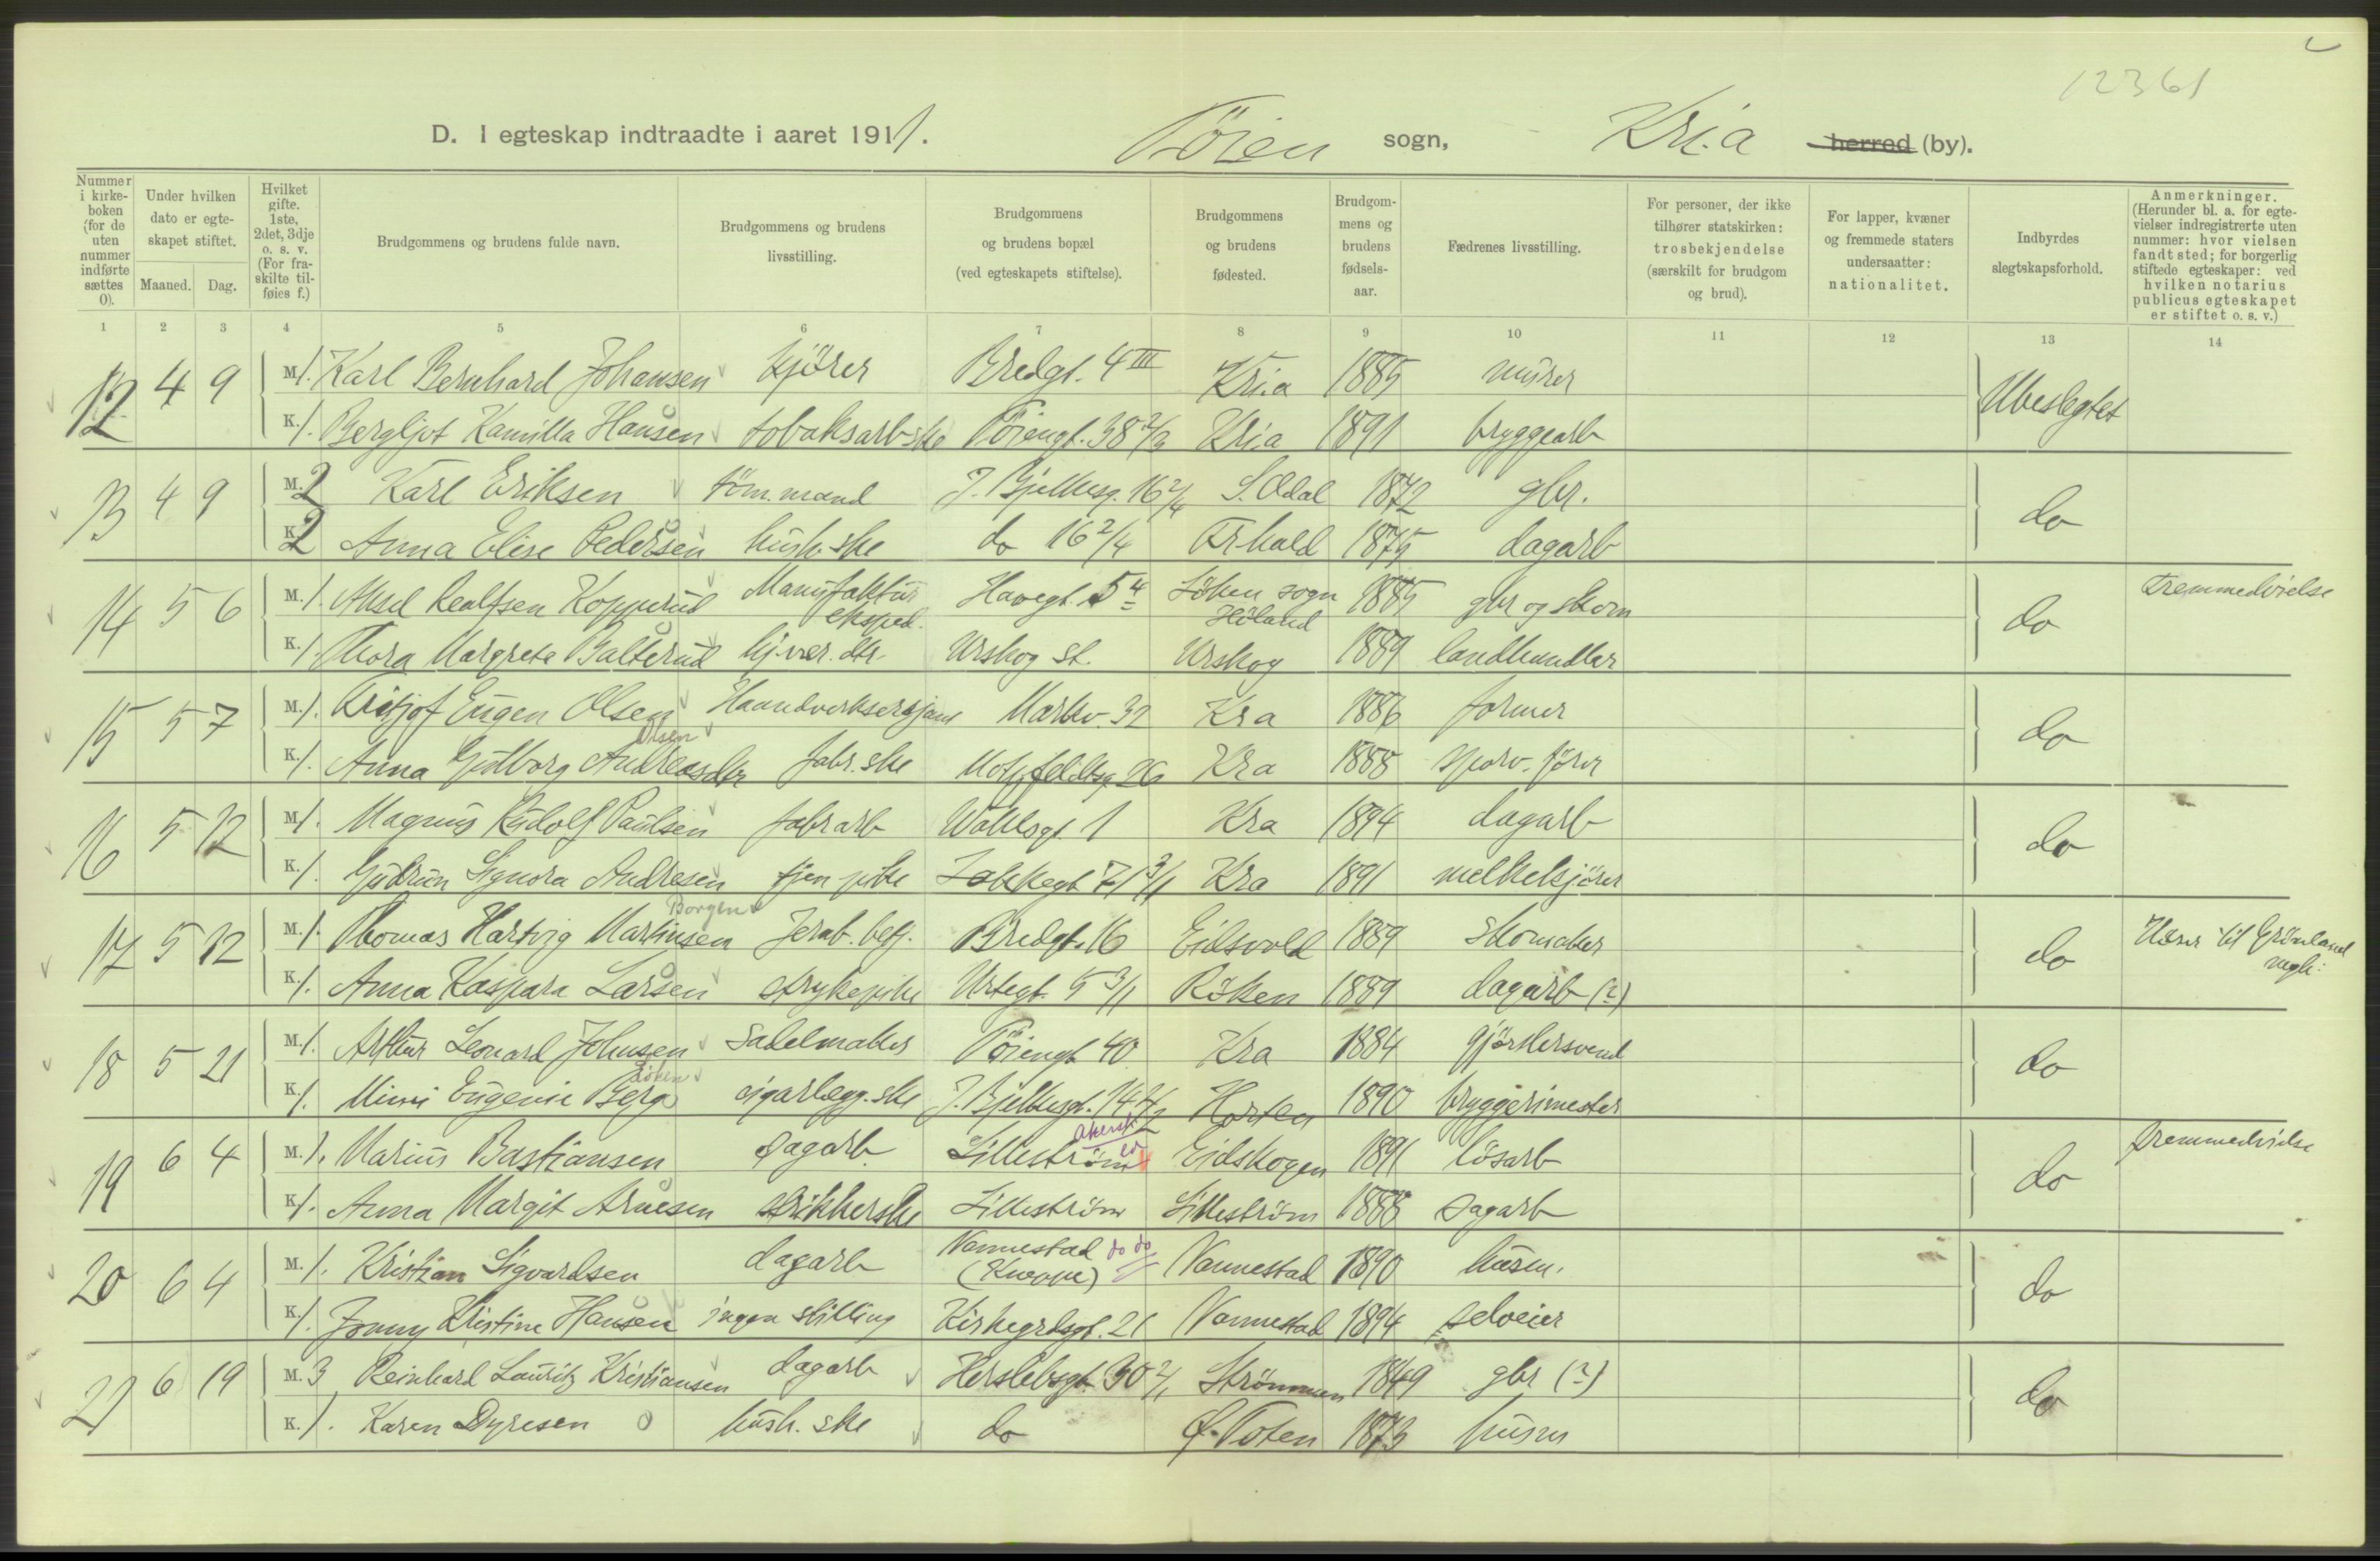 12361
D. I egteskap indtraadte i aaret 1911. Töien sogn, Kri.a herred (by).
Nummer i kirkeboken (for de uten nummer indførte sættes 0).
Under hvilken dato er egteskapet stiftet.
Maaned. Dag.
Hvilket gifte. 1ste, 2det, 3dje o. s. v. (For fraskilte tilføies f.)
Brudgommens og brudens fulde navn.
Brudgommens og brudens livsstilling.
Brudgommens og brudens bopæl (ved egteskapets stiftelse).
Brudgommens og brudens fødested.
Brudgommens og brudens fødselsaar.
Fædrenes livsstilling.
For personer, der ikke tilhører statskirken: trosbekjendelse (særskilt for brudgom og brud).
For lapper, kvæner og fremmede staters undersaatter: nationalitet.
Indbyrdes slegtskapsforhold.
Anmerkninger. (Herunder bl. a. for egtevielser indregistrerte uten nummer: hvor vielsen fandt sted; for borgerlig stiftede egteskaper: ved hvilken notarius publicus egteskapet er stiftet o. s. v.)
1 2 3 4 5 6 7 8 9 10 11 12 13 14
12 4 9 M. 1. Karl Bernhard Johansen kjörer Bredgt. 4 III Kri.a 1885 murer Ubeslegtet
K. 1. Bergljot Kamilla Hansen tobaksarb-ske Töiengt. 38 2/3 Kria 1891 bryggearb
13 4 9 M. 2 Karl Eriksen töm.mand J. Bjelkesg. 16 2/4 S. Odal 1872 gbr. do
K. 2 Anna Elise Pedersen hush.ske do 16 2/4 Frhald 1875 dagarb
14 5 6 M. 1. Aksel Realfsen Kopperud Manufaktur eksped. Havegt. 5 4 Löken sogn Höland 1885 gbr og skom do Fremmedvielse
K. 1. Thora Margrete Balterud hj.vær. dtr. Urskog st. Urskog 1889 landhandler
15 5 7 M. 1. Fritjof Eugen Olsen Haandverksersjant Markv. 32 Kra 1886 former do
K. 1. Anna Gudborg Andreasdtr Olsen fabr.ske Motzfeldtsg. 26 Kra 1888 sporv. förer
16 5 12 M. 1. Magnus Rudolf Paulsen fabrarb Wahlsgt. 1 Kra 1894 dagarb do
K. 1. Gudrun Signora Andresen tjen pike Jakkegt 71 3/1 Kra 1891 melkekjörer
17 5 12 M. 1. Thomas Hartvig Martinsen Borgen Jernb. betj. Bredgt. 16 Eidsvold 1889 skomaker do Hører til Grönland mgh:
K. 1. Anna Kaspara Larsen strykepike Urtegt. 5 3/1 Röken 1889 dagarb (?)
18 5 21 M. 1. Arthur Leonard Johnsen Sadelmaker Töiengt 40 Kra 1884 gjörtlersvend do
K. 1. Mimi Eugenie Berg Löken cigarlægg.ske J. Bjelkesgt. 14 4/2 Horten 1890 bryggerimester
19 6 4 M. 1. Marius Bastiansen Dagarb. Lilleström Akersh. Eidskogen 1891 lösarb do Fremmedvielse
K. 1. Anna Margit Arnesen strikkerske Lilleström Lilleström 1888 Dagarb
20 6 4 M. 1. Kristian Sigvardsen dagarb Nannestad (Kneppe) do do Nannestad 1890 husm. do
K. 1. Jonny Kristine Hansen ingen stilling Kirkegrdsgt. 21 Nannestad 1894 selveier
21 6 19 M. 3 Reinhard Lauritz Kristiansen dagarb Herslebsgt. 30 2/1 Strömmen 1849 gbr (?) do
K. 1. Karen Dyresen hush. ske do Ö. Toten 1873 husm